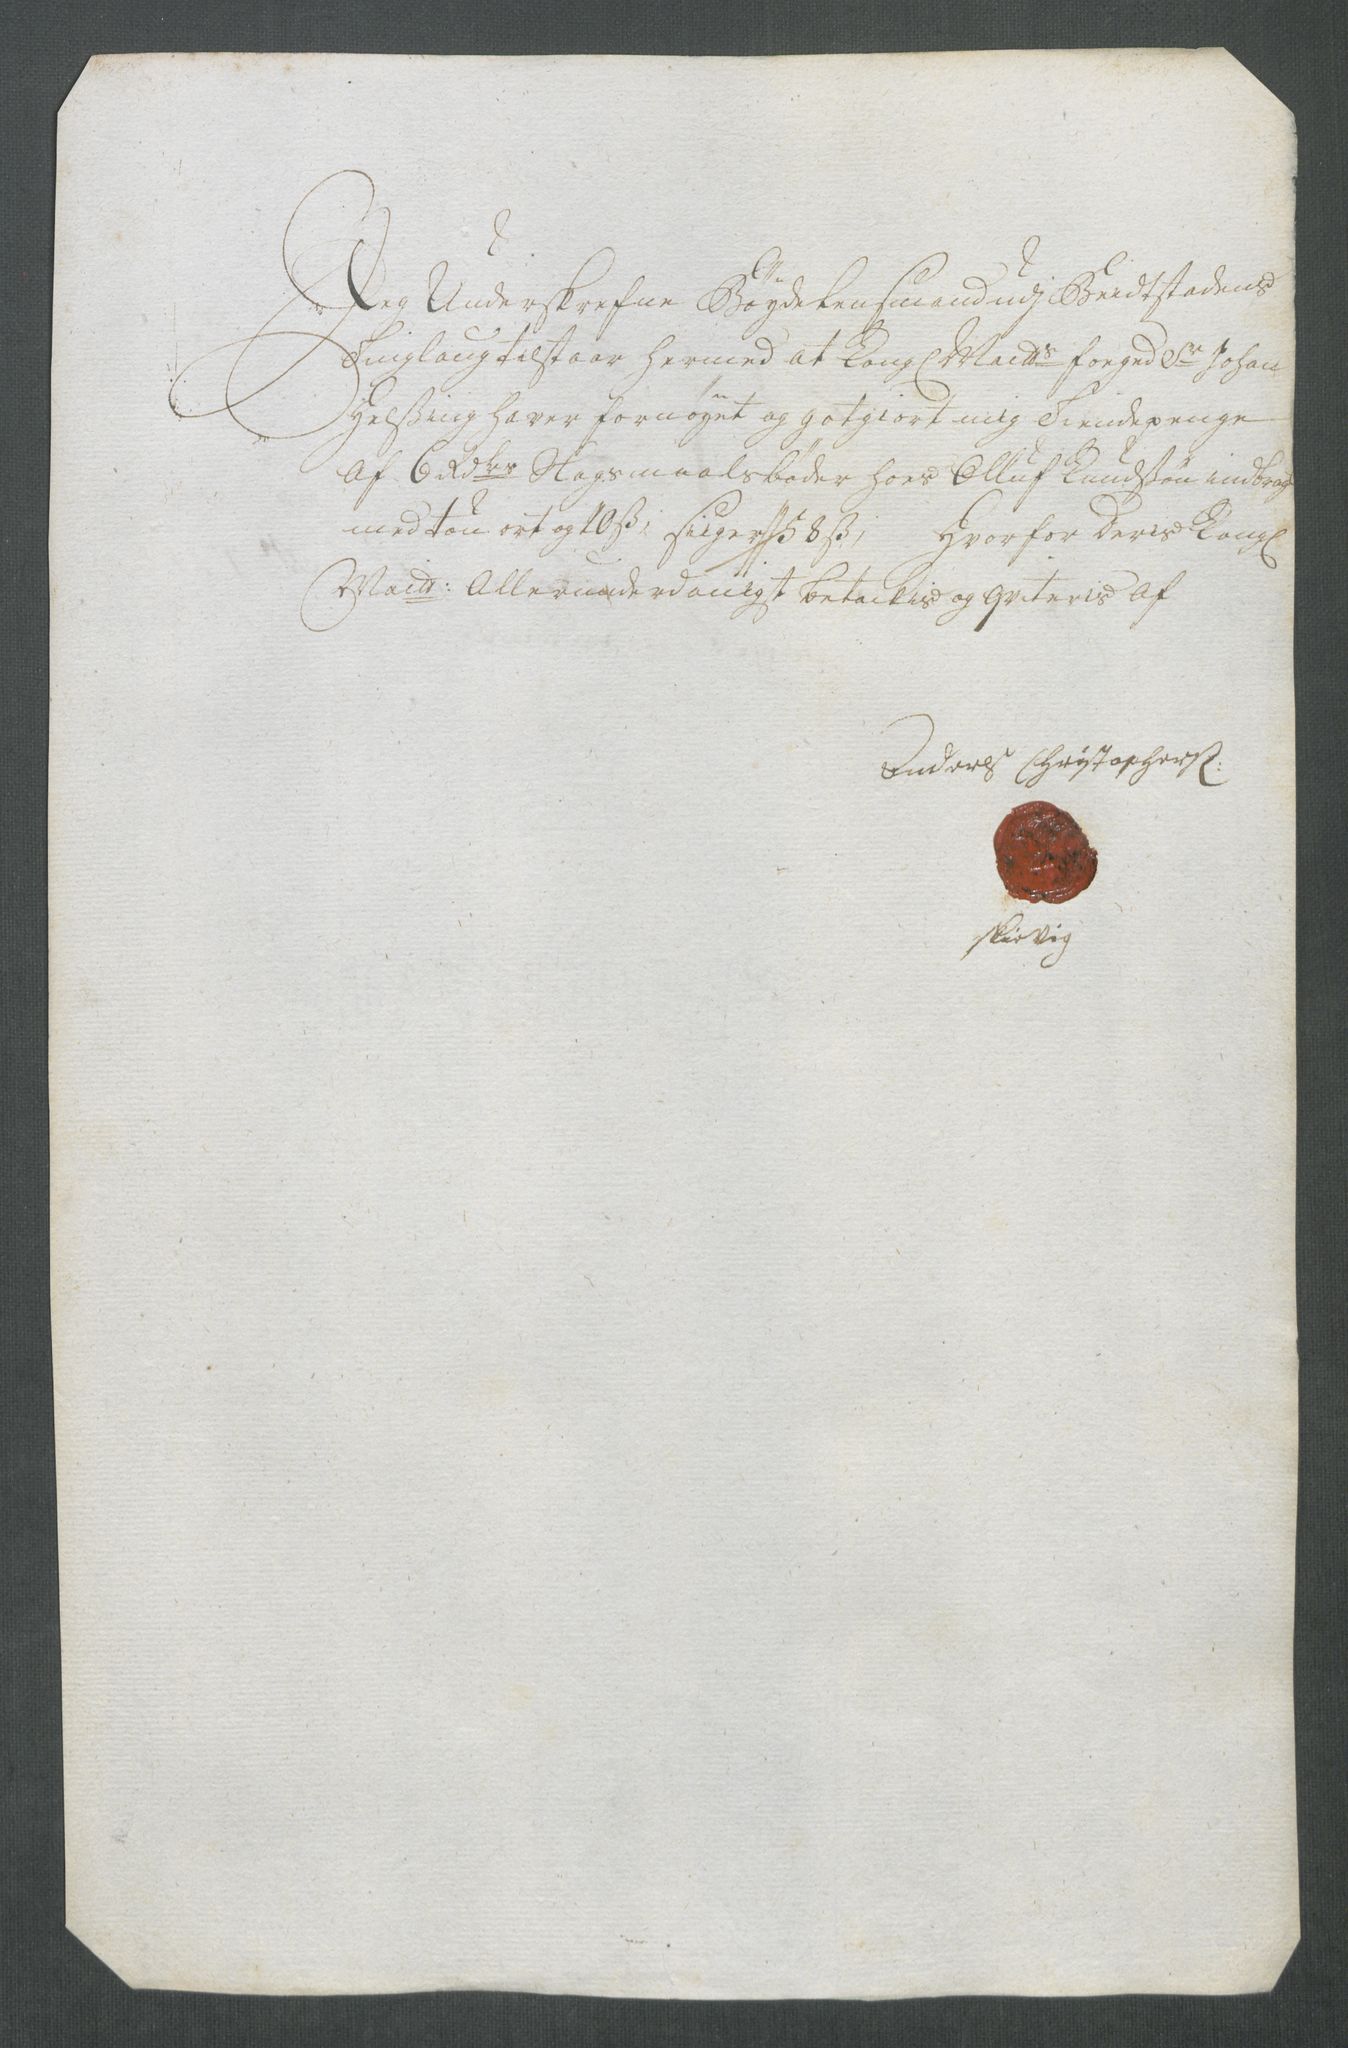 Jeg Underskrefne Böydelensmand udj Beidstadens
Tinglaug tilstaar hermed at Kongl Maitts foeged Sr Johan
Helssing haver fornöyet og gotgiort mig Tiendepenge
Af 6 Rdler Slagsmaalsböder hoes Olluf Knudssön indbragt
med tou ort og 10 ß, siiger 58 ß, Hvorfor Deris Kongl
Maitt: Allerunderdanigst betackis og qviteris Af
Anders Christophers: